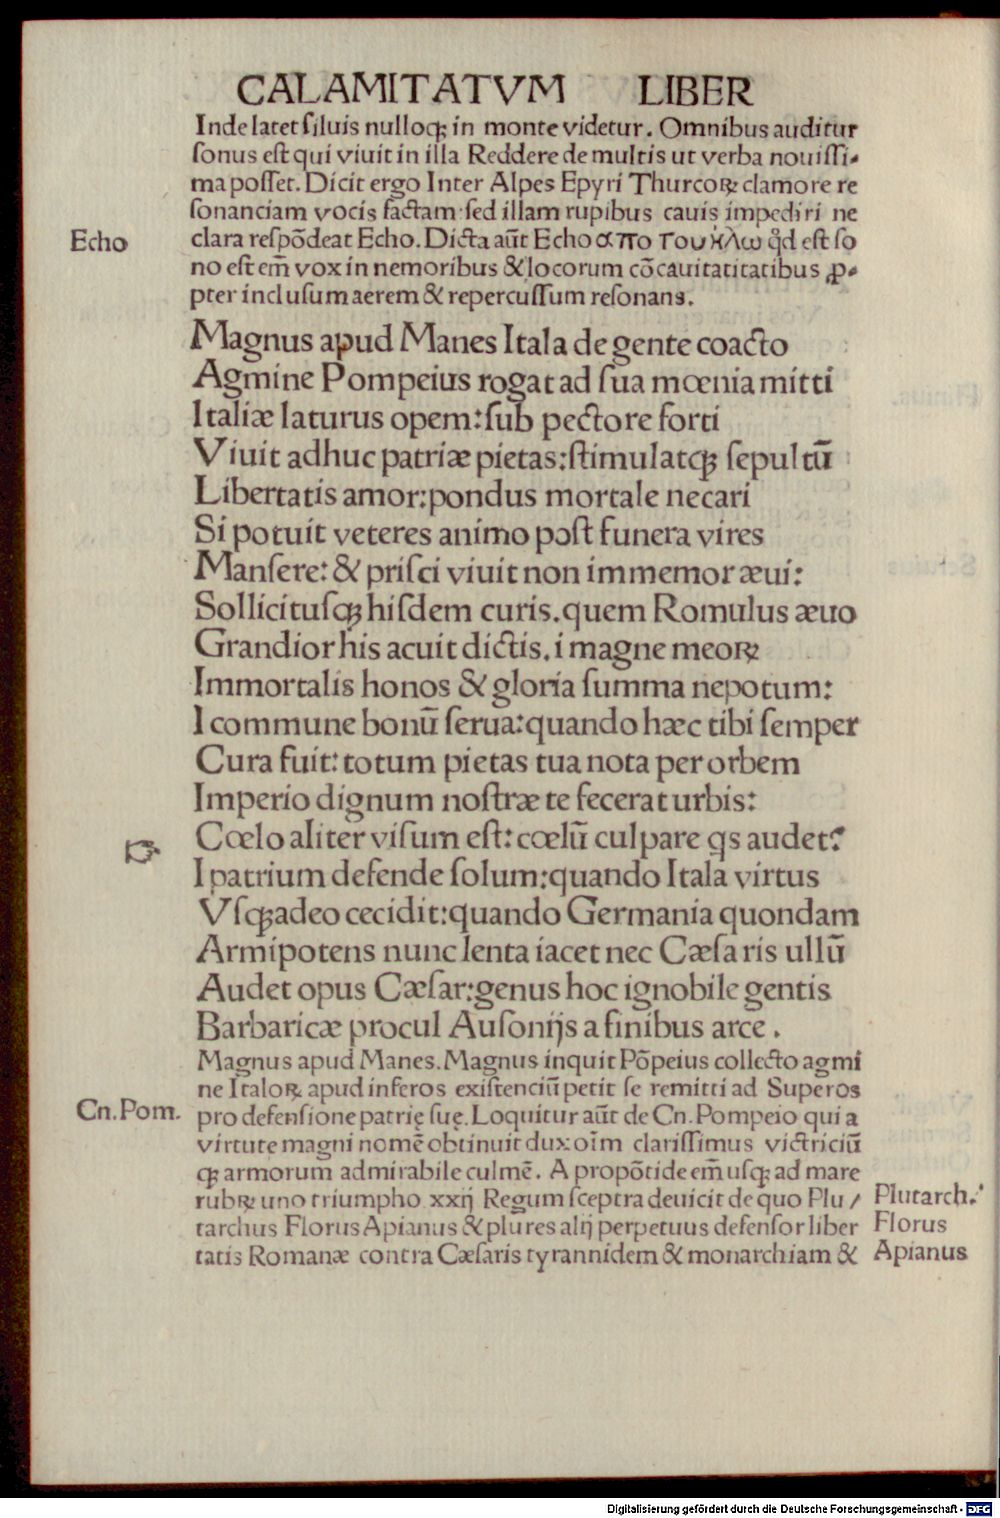 CALAMITATVM LIBER
Inde latet ſiluis nulloqꝫ in monte videtur. Omnibus auditur
ſonus eſt qui viuit in illa Reddere de multis ut verba nouiſſi⸗
ma poſſet. Dicit ergo Inter Alpes Epyri Thurcoꝝ clamore re
ſonanciam vocis factam: ſed illam rupibus cauis impediri ne
Echo
clara reſpõdeat Echo. Dicta aũt Echo απο του ηλω qd̾ eſt ſo
no eſt em̃ vox in nemoribus & locorum cõcauitatitatibus ꝓ⸗
pter incluſum aerem & repercuſſum reſonans.
Magnus apud Manes Itala de gente coacto
Agmine Pompeius rogat ad ſua mœnia mitti
Italiæ laturus opem: ſub pectore forti
Viuit adhuc patriæ pietas: ſtimulatqꝫ ſepultũ
Libertatis amor: pondus mortale necari
Si potuit veteres animo poſt funera vires
Manſere: & priſci viuit non immemor æui:
Sollicituſqꝫ hiſdem curis. quem Romulus æuo
Grandior his acuit dictis. i magne meoꝝ
Immortalis honos & gloria ſumma nepotum:
I commune bonũ ſerua: quando hæc tibi ſemper
Cura fuit: totum pietas tua nota per orbem
Imperio dignum noſtræ te fecerat urbis:
Cœlo aliter viſum eſt: cœlũ culpare qs audet?
I patrium defende ſolum: quando Itala virtus
Vſqꝫ adeo cecidit: quando Germania quondam
Armipotens nunc lenta iacet nec Cæſaris ullũ
Audet opus Cæſar: genus hoc ignobile gentis
Barbaricæ procul Auſonijs a finibus arce.
Magnus apud Manes. Magnus inquit Põpeius collecto agmi
ne Italoꝝ apud inferos exiſtenciũ petit ſe remitti ad Superos
Cn. Pom.
pro defenſione patrię ſuę. Loquitur aũt de Cn. Pompeio qui a
virtute magni nomẽ obtinuit dux oĩm clariſſimus victriciũ
qꝫ armorum admirabile culmẽ. A propõtide em̃ uſqꝫ ad mare
rubꝝ uno triumpho xxij Regum ſceptra deuicit de quo Plu/
Plutarch.
tarchus Florus Apianus & plures alij perpetuus defenſor liber
Florus
tatis Romanæ contra Cæſaris tyrannidem & monarchiam &
Apianus
Digitalisierung gefördert durch die Deutsche Forschungsgemeinschaft - DFG